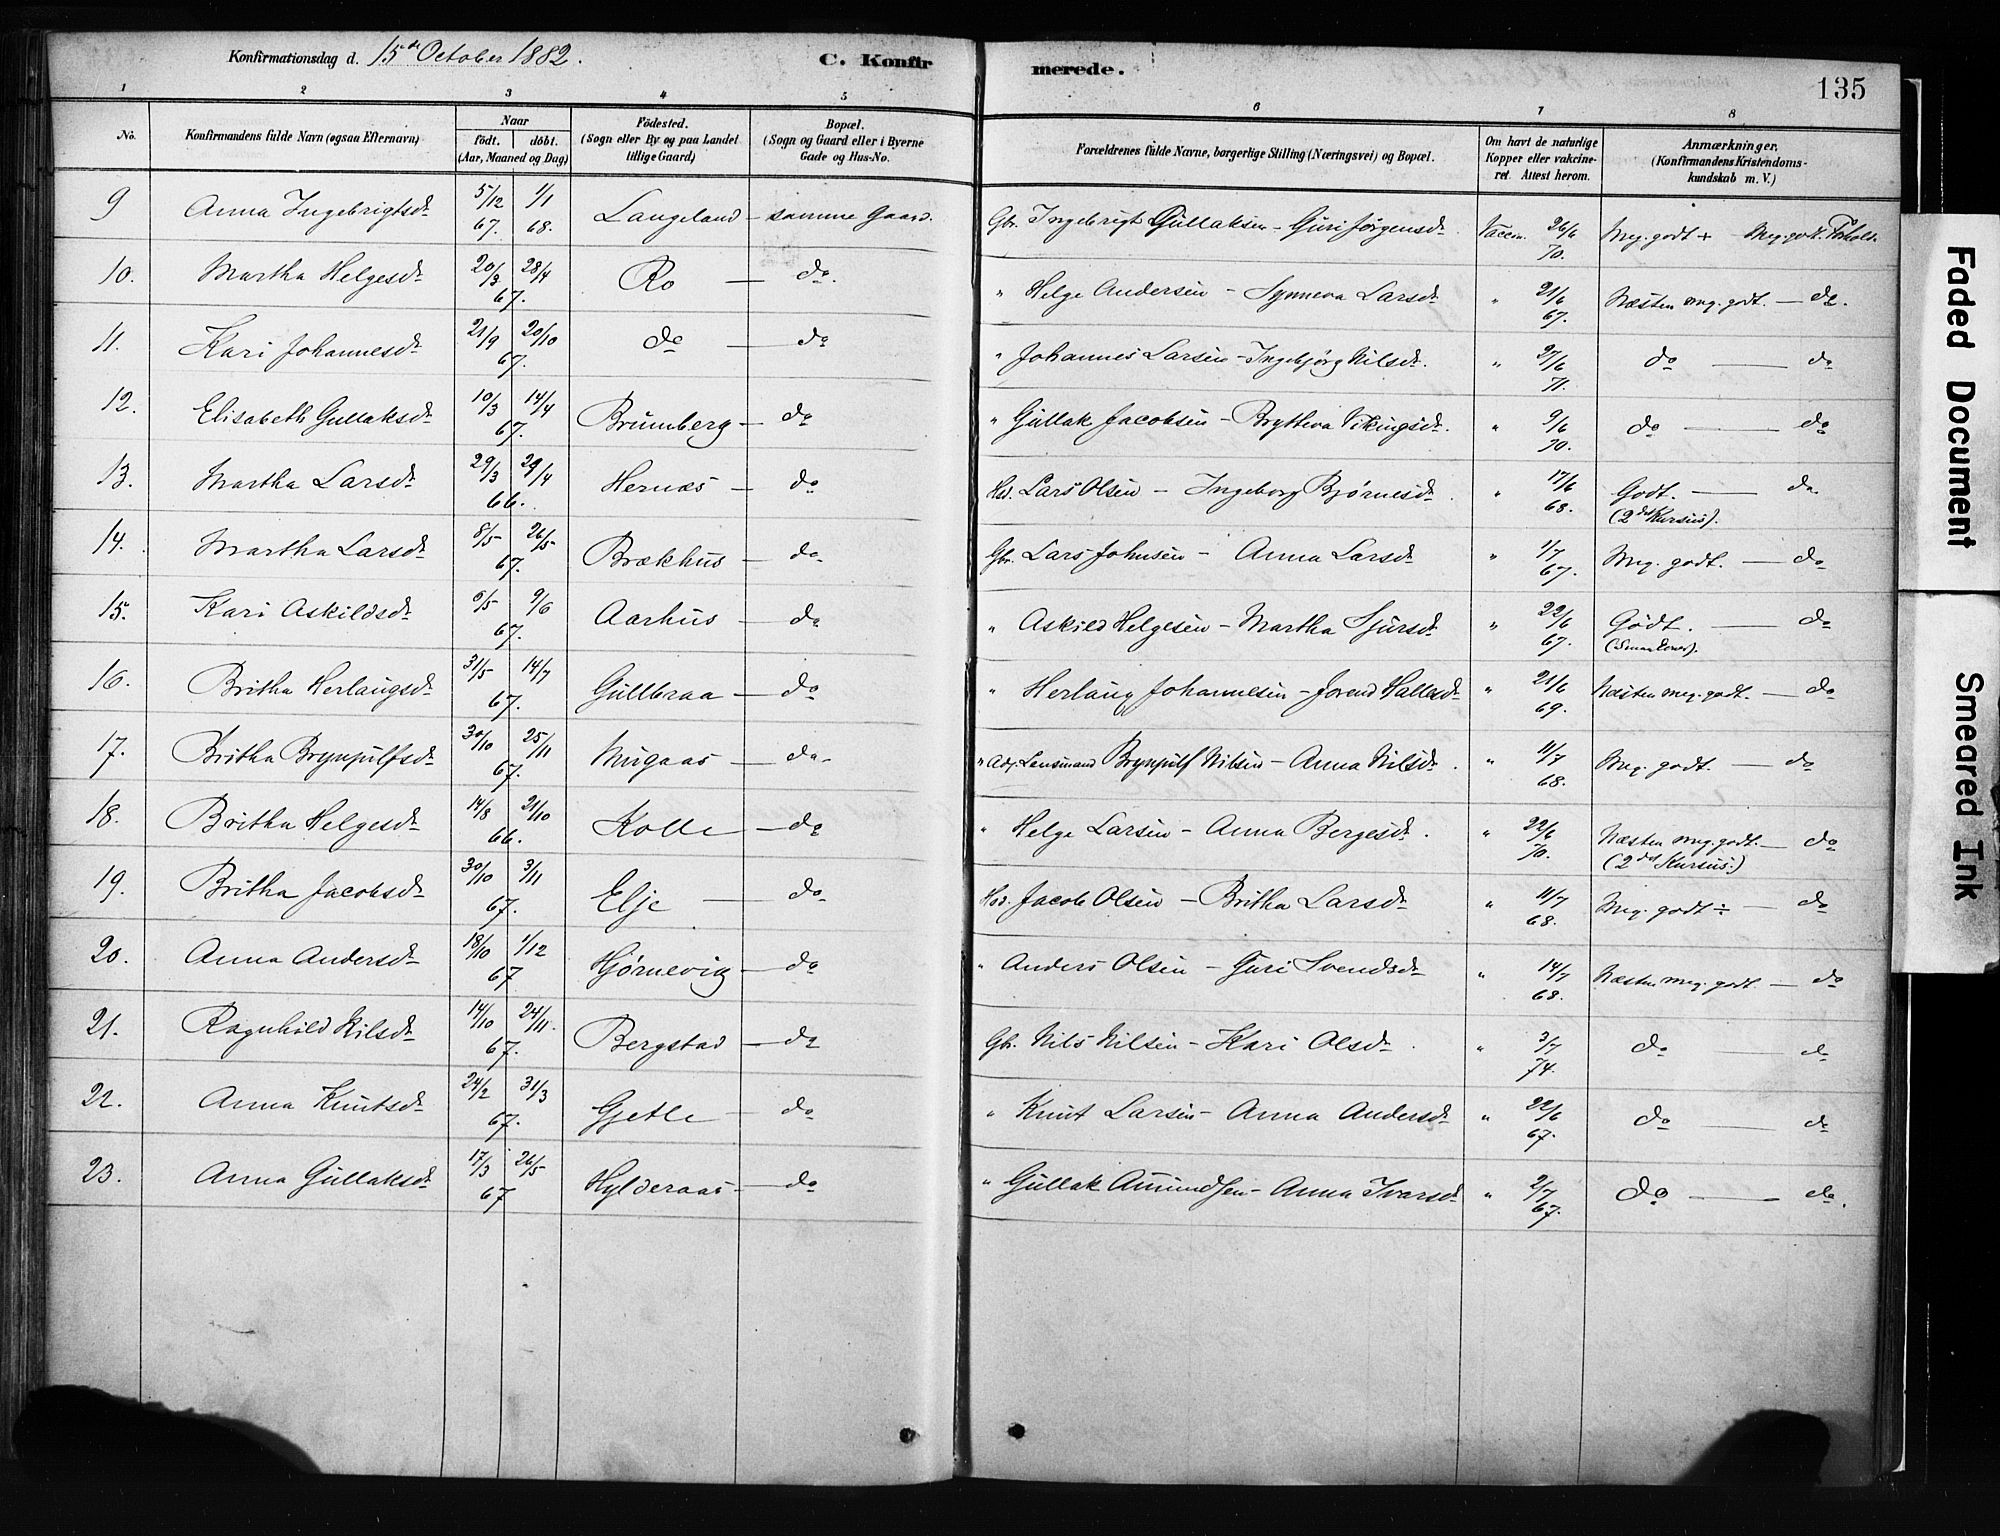 Konfirmationsdag d. 15de October 1882. C. Konfirmerede. 135
1 2 3 4 5 6 7 8
No. Konfirmandens fulde Navn (ogsaa Efternavn) Naar födt. döbt. (Aar, Maaned og Dag) Födested. (Sogn eller By og paa Landet tillige Gaard) Bopæl. (Sogn og Gaard eller i Byerne Gade og Hus-No. Forældrenes fulde Navne, borgerlige Stilling (Næringsvei) og Bopæl. Om havt de naturlige Kopper eller vakcineret. Attest herom. Anmærkninger. (Konfirmandens Kristendomskundskab m. V.)
9 Anna Ingebrigtsdr 5/12 67. 1/1 68. Langeland – samme Gaard. Gbr. Ingebrigt Gullaksen – Guri Jørgensdr. Vaccin. 26/6 70. Meg. godt + Meg. godt Forhold.
10. Martha Helgesdr 20/3 28/4 67. Ro — do. " Helge Andersen – Synneva Larsdr " 21/6 67. Næsten meg. godt. — do.
11. Kari Johannesdr 21/9 20/10 67. do — do " Johannes Larsen – Ingebjørg Nilsdr. " 27/6 71. do — do
12. Elisabeth Gullaksdr 10/3 14/4 67. Brunberg – do " Gullak Jacobsen – Brytteva Vikingsdr. " 9/6 70. do — do
13. Martha Larsdr 29/3 29/4 66. Hernæs – do Hsd. Lars Olsen – Ingeborg Bjørnesdr. " 17/6 68. Godt. — do (2det Kursus).
14. Martha Larsdr 8/5 26/5 67. Brækhus – do Gbr. Lars Johnsen – Anna Larsdr " 1/7 67. Meg. godt. — do
15. Kari Askildsdr 5/5 9/6 67. Aarhus – do " Askild Helgesen – Martha Sjursdr " 22/6 67. Godt. — do
16. Britha Herlaugsdr 31/5 14/7 67. Gullbraa – do " Herlaug Johannesen – Jorend Hallesdr " 21/6 69. Næsten meg. godt. — do
17. Britha Brynjulfsdr 30/10 25/11 67. Mugaas – do " Adj. Lensmand Brynjulf Nilsen – Anna Nilsdr. " 11/7 68. Meg. godt. — do
18. Britha Helgesdr 14/8 21/10 66. Kolle – do " Helge Larsen – Anna Bergesdr. " 22/6 70. Næsten meg. godt. — do (2det Kursus.)
19. Britha Jacobsdr 30/10 3/11 67. Elje — do Hsd. Jacob Olsen – Britha Larsdr " 11/7 68. Meg. godt ÷ — do
20. Anna Andersdr 18/10 1/12 67 Hjørnevig – do " Anders Olsen – Guri Svendsdr " 14/7 68. Næsten meg. godt. — do
21. Ragnhild Nilsdr 14/10 24/11. 67. Bergstad – do Gbr. Nils Nilsen – Kari Olsdr. " 3/7 74. do — do
22. Anna Knutsdr 24/2 31/3 67. Gjetle – do " Knut Larsen – Anna Andersdr " 22/6 67. do — do
23. Anna Gullaksdr 17/3 26/5 67 Hylderaas – do " Gullak Amundsen – Anna Ivarsdr " 2/7 67. do — do.
Faded Document
Smeared Ink